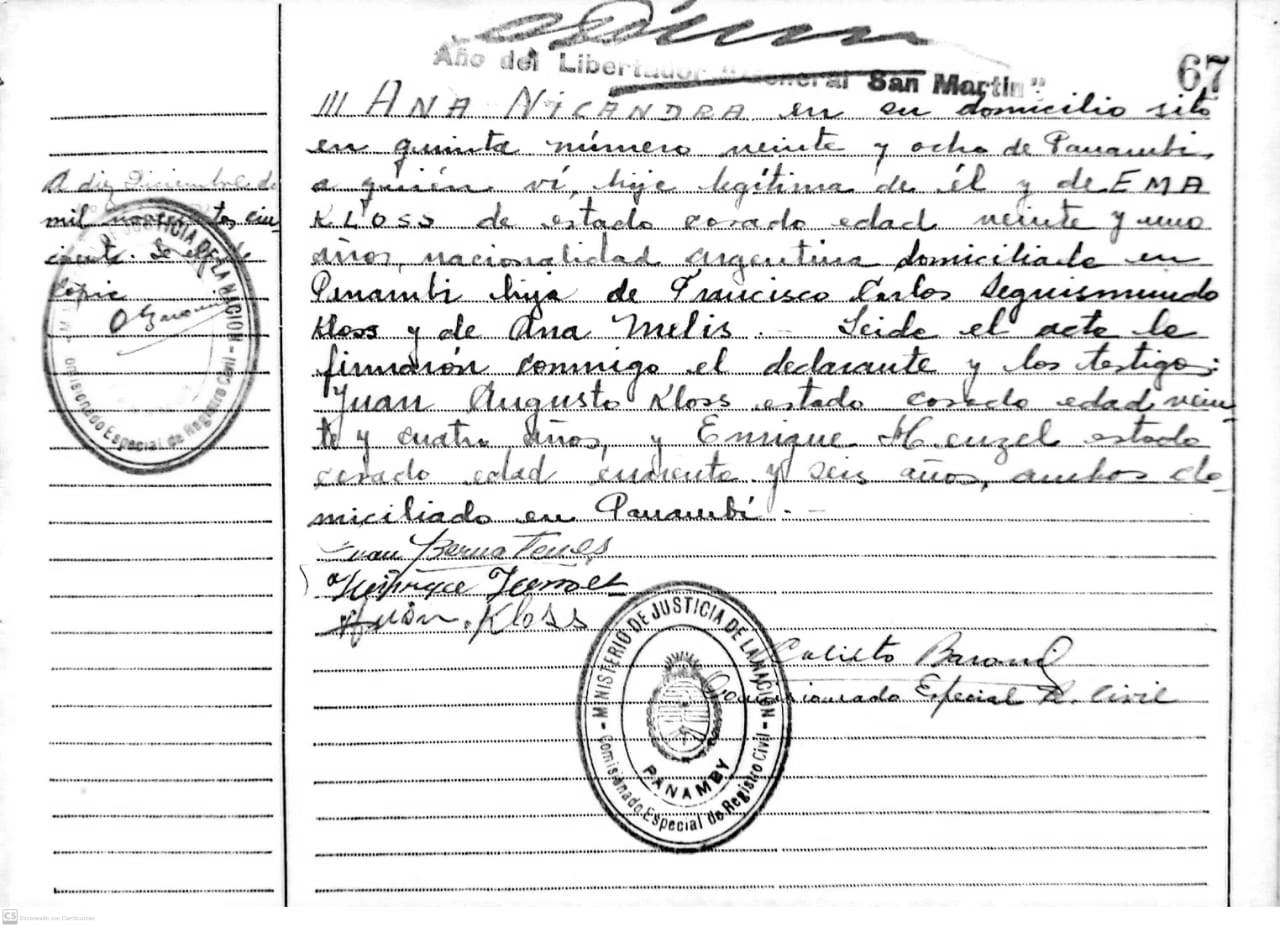 Año del Libertador "General San Martin"
67
/// ANA NICANDRA en su domicilio sito
en quinta número veinte y ocho de Panambi,
a quién ví, hija legítima de él y de EMA
KLOSS de estado casado edad veinte y uno
años, nacionalidad argentina domiciliada en
Panambi hija de Francisco Carlos Seguismundo
Kloss y de Ana Melis. - Leida el acta la
firmarón conmigo el declarante y los testigo:
Juan Augusto Kloss estado casado edad vein-
te y cuatro años, y Enrique Henzel estado
casado edad cuarenta y seis años, ambos do-
miciliado en Panambí. -
Juan
Juan. Kloss
Calisto
Comisionado Especial R. Civil
MINISTERIO DE JUSTICIA DE LA NACION
PANAMBY
Comisionado Especial de Registro Civil
A diez Diciembre de
mil novecientos cin
cuenta. Se
copia
JUSTICIA DE LA NACION
omisionado Especial de Registro Civil
CS Escaneado con CamScanner